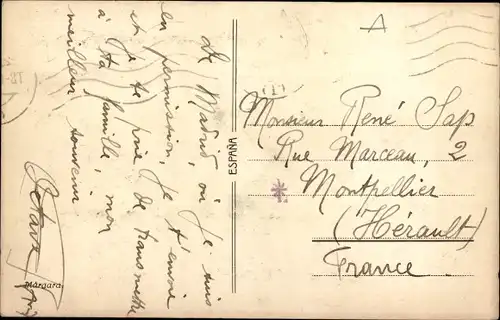 De Madrid, où je suis
en permission, je t'envoie
et je te prie de transmettre
à ta famille, mon
meilleur souvenir
Margara
ESPAÑA
A
(1)
Monsieur René Sap
Rue Marceau, 2
Montpellier
(Hérault)
France